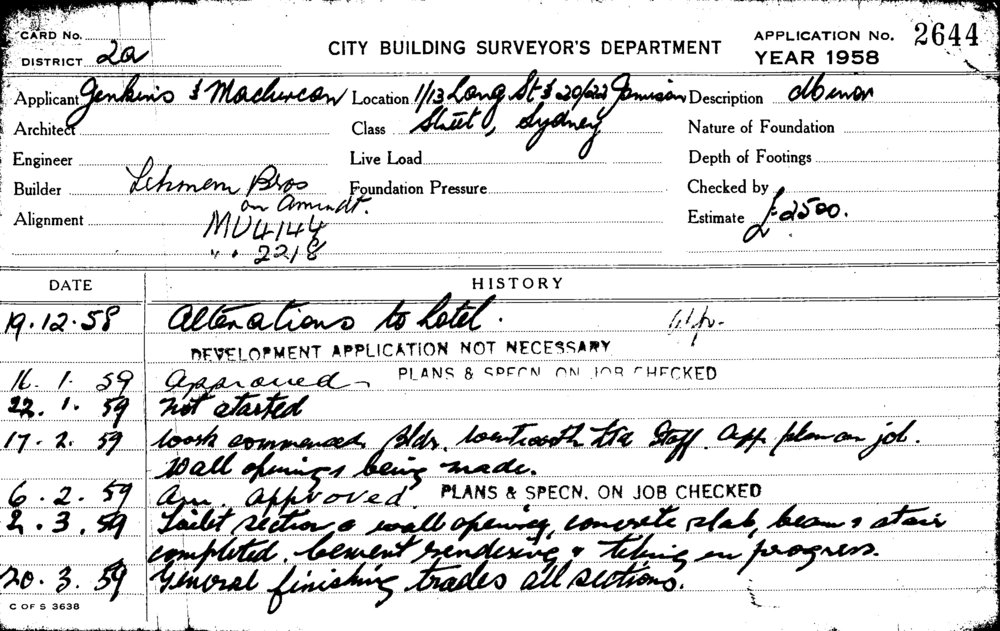 CARD No.
DISTRICT 2a
CITY BUILDING SURVEYOR'S DEPARTMENT
APPLICATION No. 2644
YEAR 1958
Applicant Jenkins & Maclurcan Location 1/13 Lang St & 20/22 Jamison Description
Architect Class Street, Sydney Nature of Foundation
Engineer Live Load Depth of Footings
Builder Bros Foundation Pressure Checked by
on Amendt.
Alignment MU4144 Estimate £2500.
" " 2218
DATE HISTORY
19.12.58 Alterations to hotel.
DEVELOPMENT APPLICATION NOT NECESSARY
16. 1. 59 Approved PLANS & SPECN. ON JOB CHECKED
22. 1. 59 Not started
17. 2. 59 Work commenced Bldr. Wentworth Staff. App. plan on job.
Wall openings being made.
6. 2. 59 Am. Approved PLANS & SPECN. ON JOB CHECKED
2. 3. 59 Toilet section & wall opening, concrete slab, beam & stair
completed. Cement rendering & tiling in progress.
20. 3. 59 General finishing trades all sections.
C OF S 3638